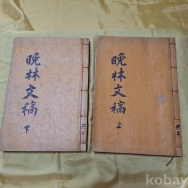 晩林文稿
下
晩林文稿
上
kobay